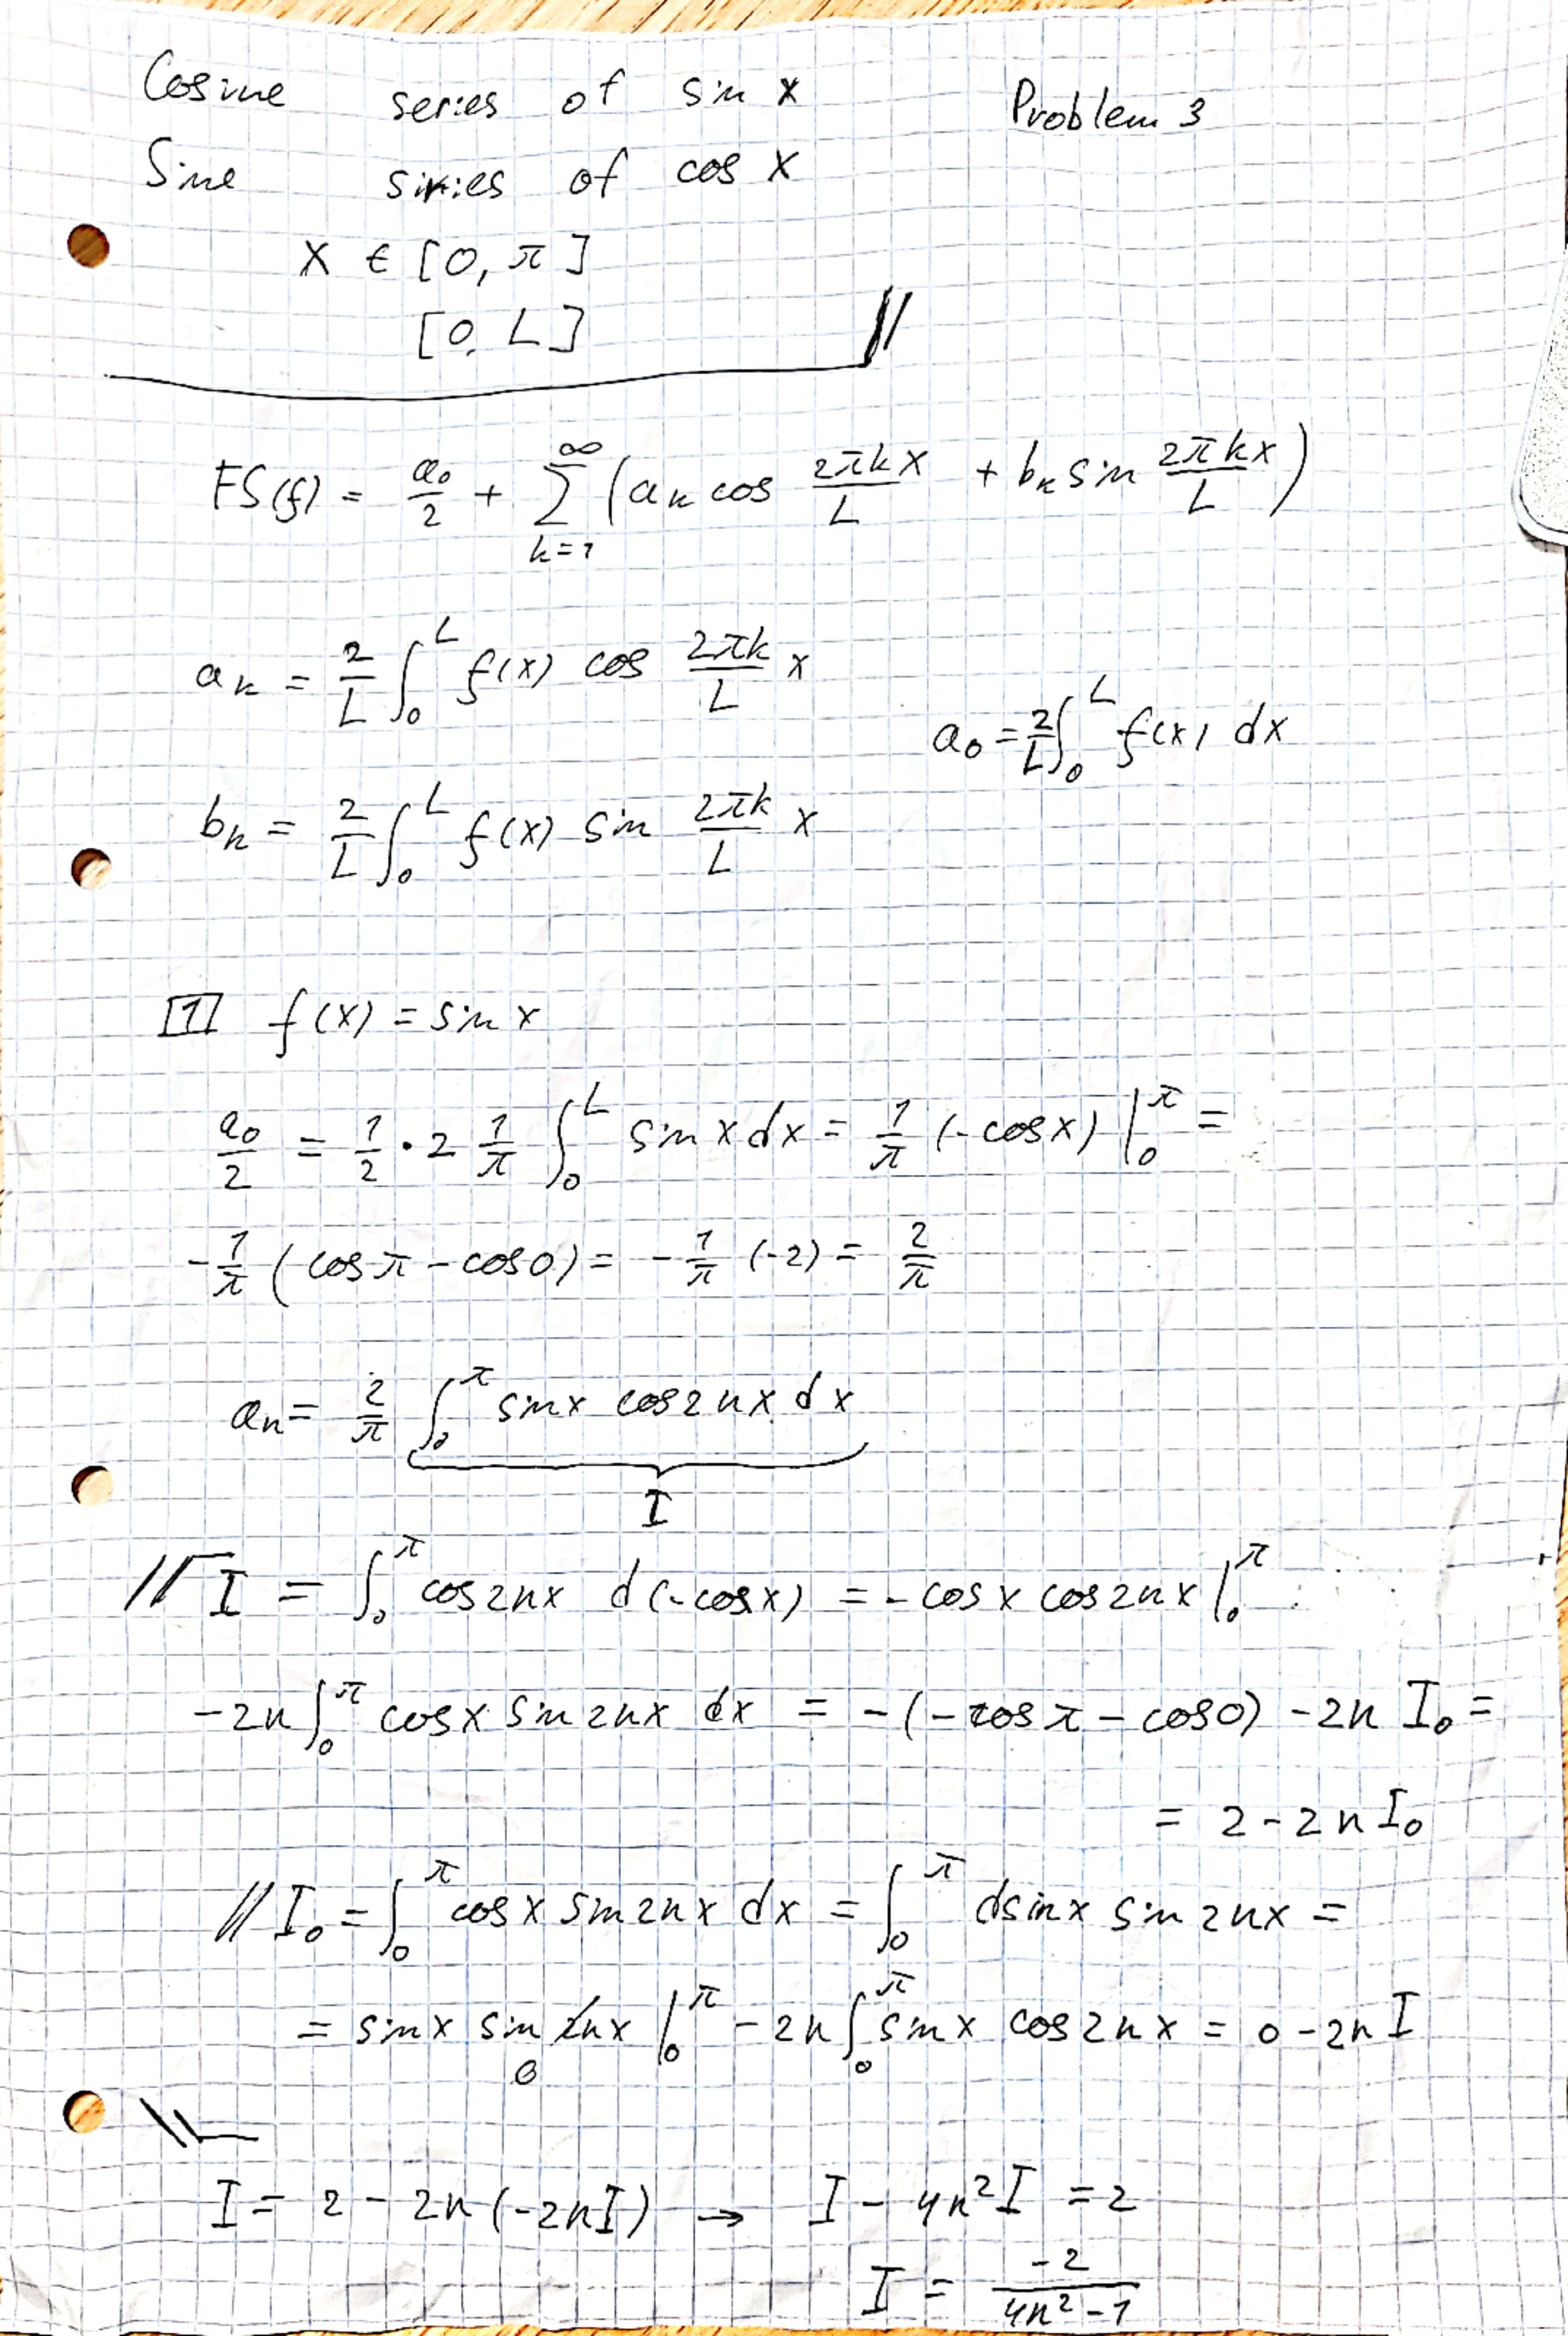 Cosine series of sin x
Problem 3
Sine siries of cos x
x ∈ [0, π]
[0, L]
FS(f) = a₀/2 + ∑_{k=1}^{∞} (aₖ cos 2πkx/L + bₖ sin 2πkx/L)
aₖ = 2/L ∫₀^L f(x) cos 2πk/L x
a₀ = 2/L ∫₀^L f(x) dx
bₖ = 2/L ∫₀^L f(x) sin 2πk/L x
[1] f(x) = sin x
a₀/2 = 1/2 · 2 1/π ∫₀^L sin x dx = 1/π (-cos x) |₀^π =
-1/π (cos π - cos 0) = -1/π (-2) = 2/π
aₙ = 2/π ∫₀^π sin x cos 2nx dx
I
// I = ∫₀^π cos 2nx d(-cos x) = - cos x cos 2nx |₀^π
-2n ∫₀^π cos x sin 2nx dx = -(-cos π - cos 0) - 2n I₀ =
= 2 - 2n I₀
// I₀ = ∫₀^π cos x sin 2nx dx = ∫₀^π dsin x sin 2nx =
= sin x sin 2nx |₀^π - 2n ∫₀^π sin x cos 2nx = 0 - 2n I
0
\\
I = 2 - 2n (-2nI) → I - 4n² I = 2
I = -2/(4n² - 1)